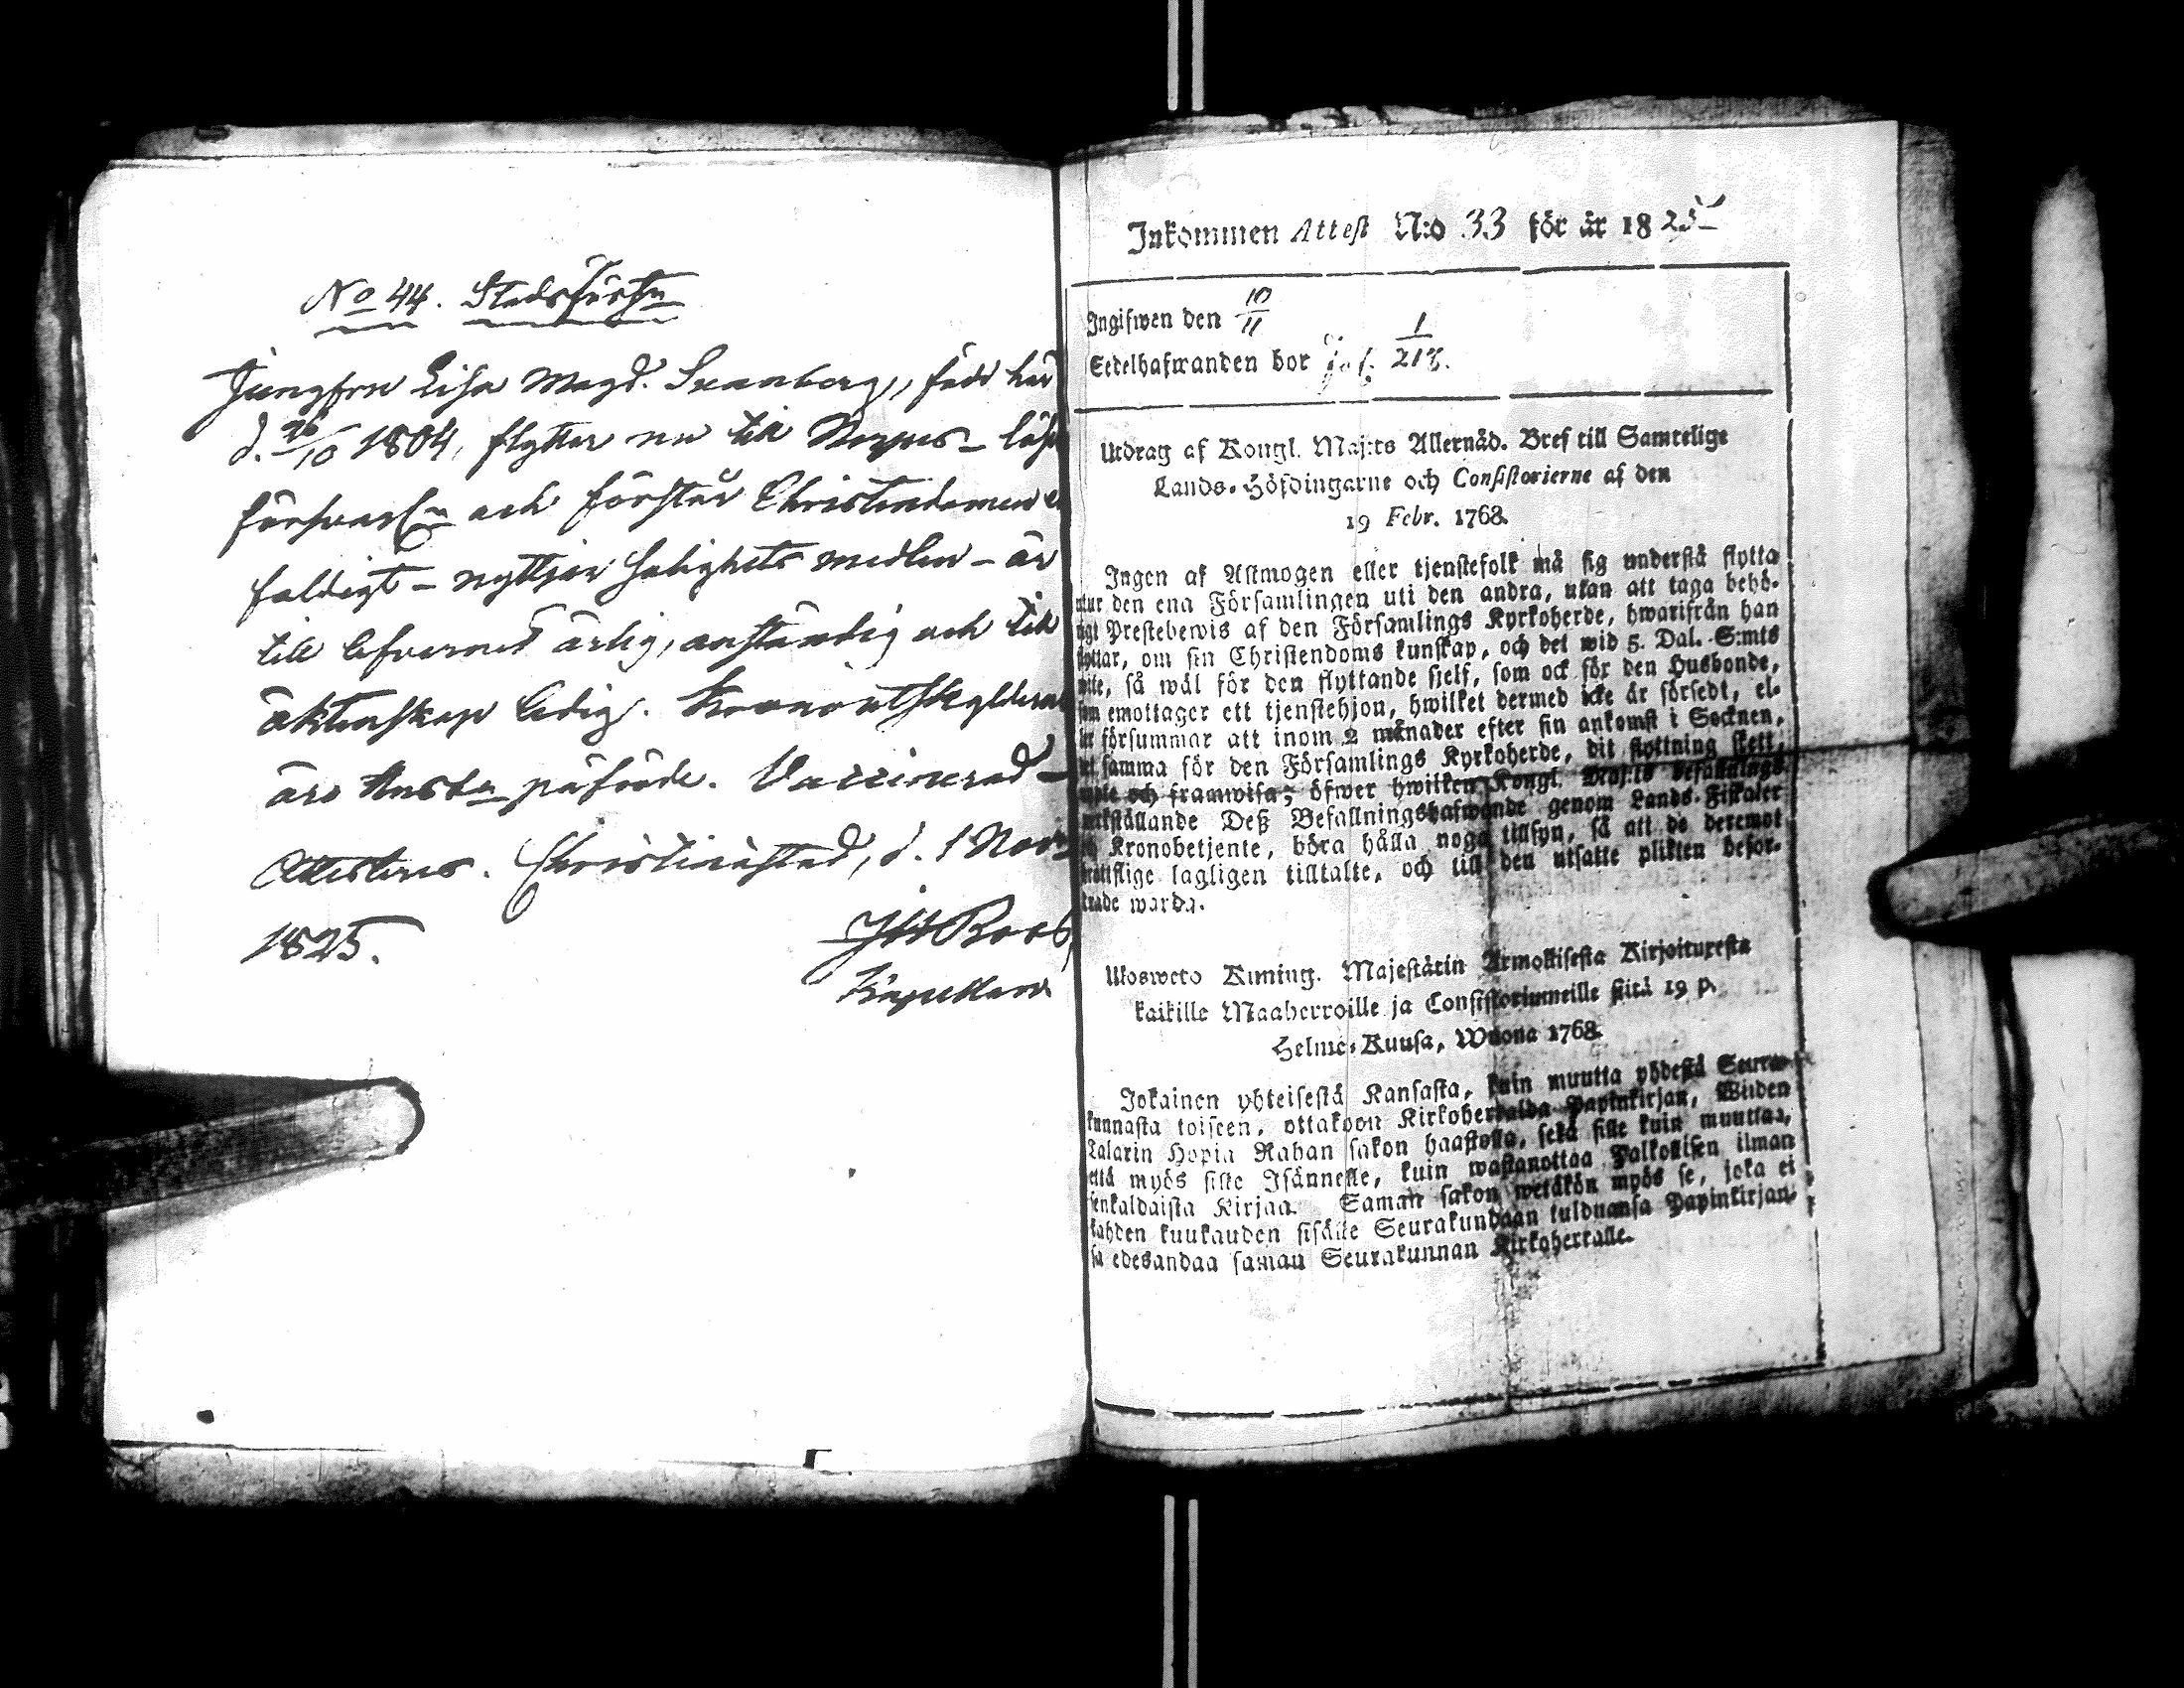 No 44. Stadsförsn
Jungfru Lisa Magd. Svanberg, född här
d. 26/10 1804, flyttar nu till - läser
försvarln och förstår Christendomen en
faldigt - nyttjar salighets medlen - är
till lefvernet ärlig, anständig och till
äktenskap ledig. Kronoutskylderne
äro påförde. Vaccinerad -
Attesteras. Christinæstad, d. 1 Nov:
1825.
Kapellan.
Inkommen Attest N:o 33 för år 1825
Ingifwen den 10/11
Sedelhafwanden bor 1/218.
Utdrag af Kongl. Maj:ts Allernåd. Bref till Samtelige
Lands-Höfdingarne och Consistorierne af den
19 Febr. 1768.
Ingen af Allmogen eller tjenstefolk må sig understå flytta
utur den ena Församlingen uti den andra, utan att taga behö-
rigt Prestebewis af den Församlings Kyrkoherde, hwarifrån han
flyttar, om sin Christendoms kunskap, och det wid 5. Dal. S:mts
wite, så wäl för den flyttande sjelf, som ock för den Husbonde,
som emottager ett tjenstehjon, hwilket dermed icke är försedt, el-
ler försummar att inom 2 månader efter sin ankomst i Socknen,
det samma för den Församlings Kyrkoherde, dit flyttning skett,
upte och framwisa; öfwer hwilken Kongl. Maj:ts befallnings
werkställande Deß Befallningshafwande genom Lands-Fiskaler
och Kronobetjente, böra hålla noga tillsyn, så att de deremot
brottslige lagligen tilltalte, och till den utsatte plikten befor-
drade warda.
Ulosweto Kuning. Majestätin Armollisesta Kirjoituxesta
kaikille Maaherroille ja Consistoriumeille siitä 19 p.
Helme-Kuusa, Wuona 1768.
Jokainen yhteisestä Kansasta, kuin muutta yhdestä Seura-
kunnasta toiseen, ottakoon Kirkoherralda Papinkirjan, Wiiden
Talarin Hopia Rahan sakon haastolla, sekä sille kuin muuttaa,
että myös sille Isännelle, kuin wastanottaa Palkollisen ilman
senkaldaista Kirjaa. Saman sakon wetäkön myös se, joka ei
kahden kuukauden sisälle Seurakundaan tulduansa Papinkirjan-
sa edesandaa saman Seurakunnan Kirkoherralle.